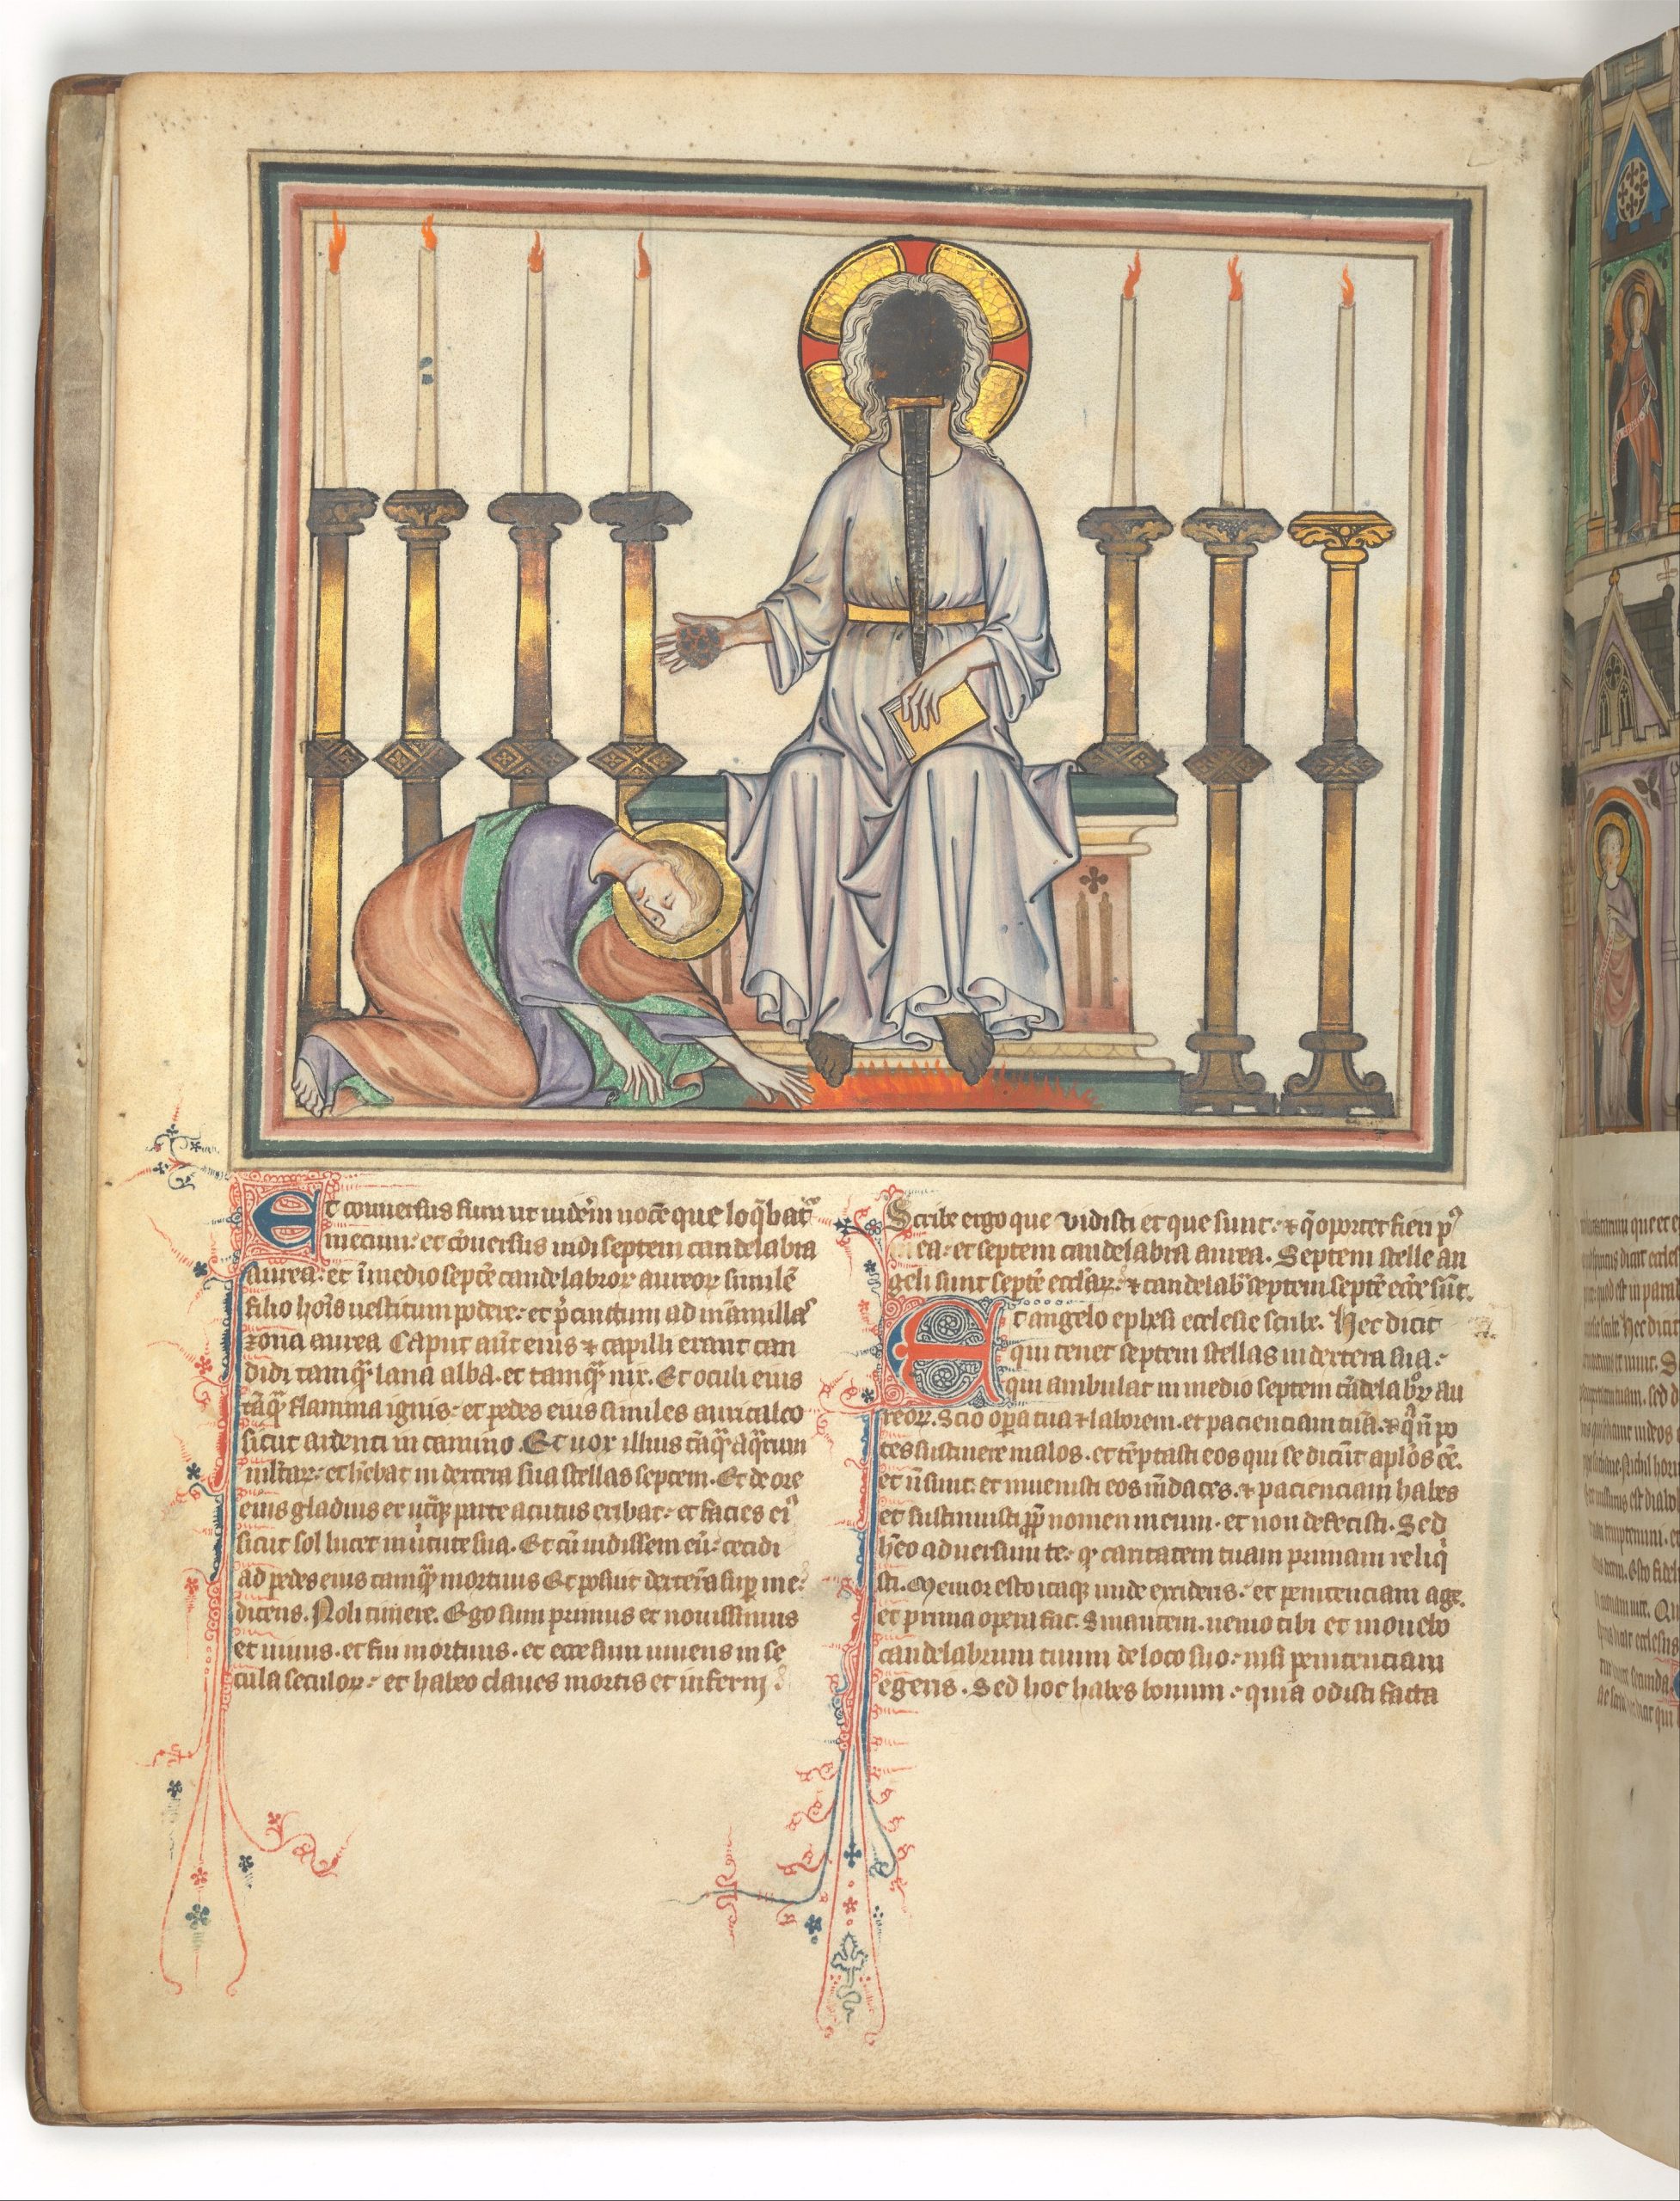 Et conuersus sum ut uidērem uocē que loq̄bat᷑
mecum: et cōuersus uidi septem candelabra
aurea: et ī medio septē candelabroꝝ aureoꝝ similē
filio hoīs uestitum podere: et p̄cinctum ad mamillas
zona aurea Caput aūt eius ⁊ capilli erant can
didi tamq̄ lana alba. et tamq̄ nix. Et oculi eius
tāq̄ flamma ignis: et pedes eius similes auricalco
sicut ardenti in camino. Et uox illius tāq̄ aq̄rum
multaꝝ: et hēbat in dextera sua stellas septem. Et de ore
eius gladius ex utq̄ parte acutus exibat: et facies ei᷒
sicut sol lucet in uirtute sua. Et cū uidissem eū: cecidi
ad pedes eius tamq̄ mortuus Et posuit dexterā suā sup me:
dicens. Noli timere. Ego sum primus et nouissimus
et uiuus. et fui mortuus. et ecce sum uiuens in se
cula seculoꝝ: et habeo claues mortis et inferni.
Scribe ergo que vidisti et que sunt: ⁊ q̄ oportet fieri p᷒
ea: et septem candelabra aurea. Septem stelle an
geli sunt septē eccl̄iaꝝ: ⁊ candelab̄ septem septē ecc̄e sūt.
Et angelo ephesi ecclesie scribe. Hec dicit
qui tenet septem stellas in dextera sua:
qui ambulat in medio septem cādelab̄ꝝ au
reoꝝ. Scio opera tua ⁊ laborem. et pacienciam tuā. ⁊ q̄ n̄ po
tes sustinere malos. et tēptasti eos qui se dicūt apl̄os eē.
et n̄ sunt: et inuenisti eos mēdaces. ⁊ pacienciam habes
et sustinuisti ꝓp̄ nomen meum. et non defecisti. Sed
hēo aduersum te: q̄ caritatem tuam primam reliq̄
sti. Memor esto itaq̄ unde excideris: et penitenciam age.
et prima opera fac. Sin autem. uenio tibi et mouebo
candelabrum tuum de loco suo: nisi penitenciam
egeris. Sed hoc habes bonum: quia odisti facta